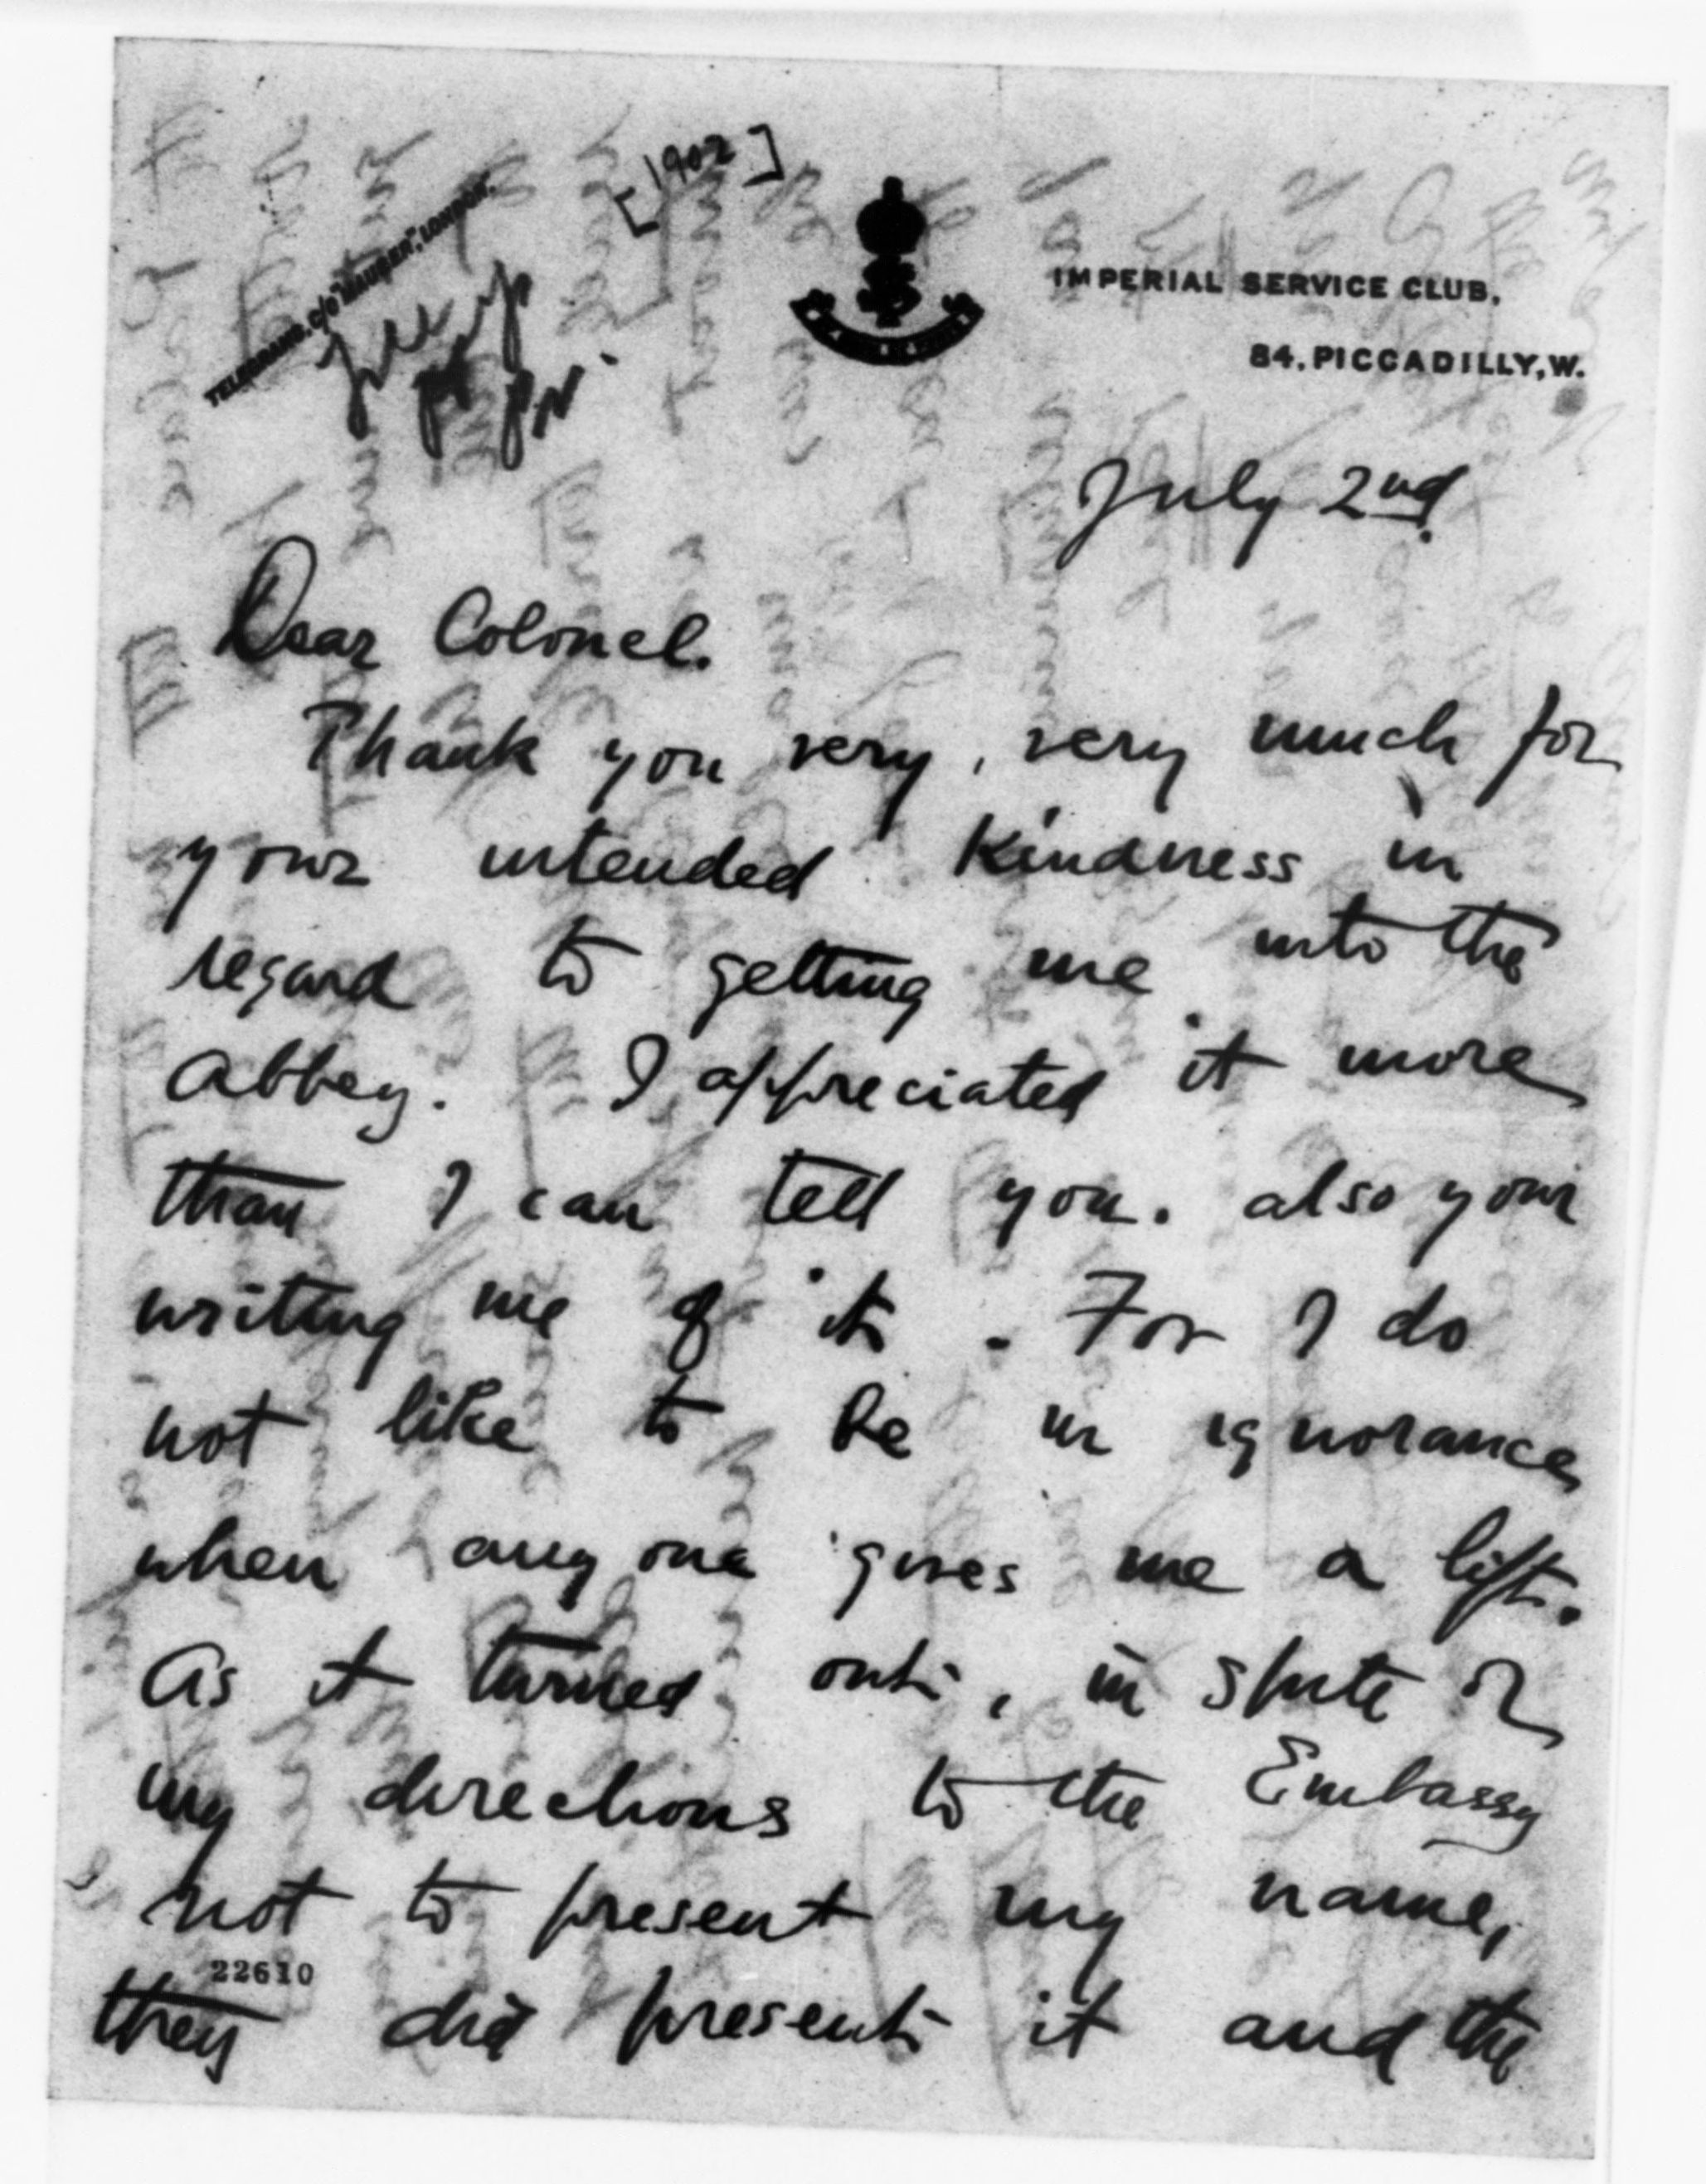 [1902]
TELEGRAMS. C/O "MAUSER", LONDON.
IMPERIAL SERVICE CLUB,
84, PICCADILLY, W.
July 2nd.
Dear Colonel.
Thank you very, very much for
your intended kindness in
regard to getting me into the
Abbey. I appreciated it more
than I can tell you. also your
writing me of it. For I do
not like to be in ignorance
when any one gives me a lift.
As it turned out, in spite of
my directions to the Embassy
not to present my name,
they did present it and the
22610